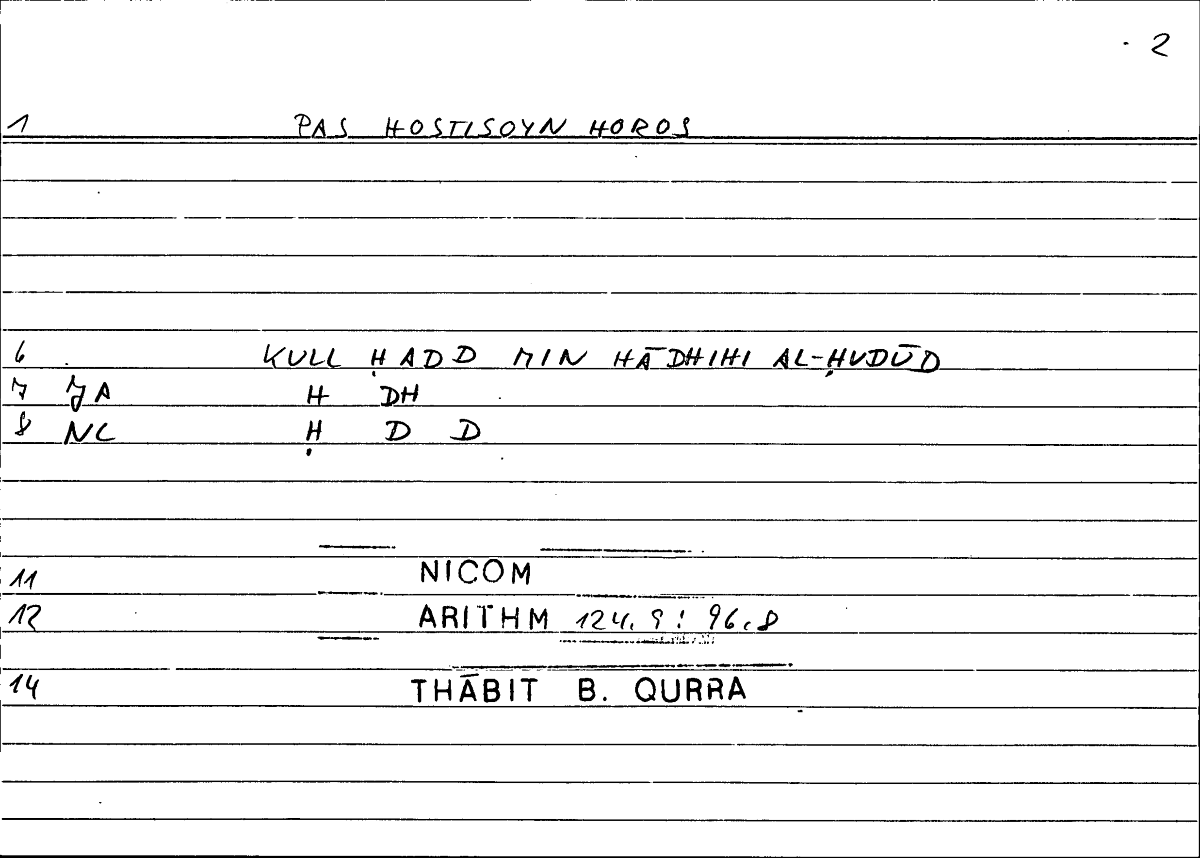 · 2
1 PAS HOSTISOYN HOROS
6 KULL ḤADD MIN HĀDHIHI AL-ḤUDŪD
7 JA H DH
8 NC Ḥ D D
11 NICOM
12 ARITHM 124.9 : 96.8
14 THĀBIT B. QURRA